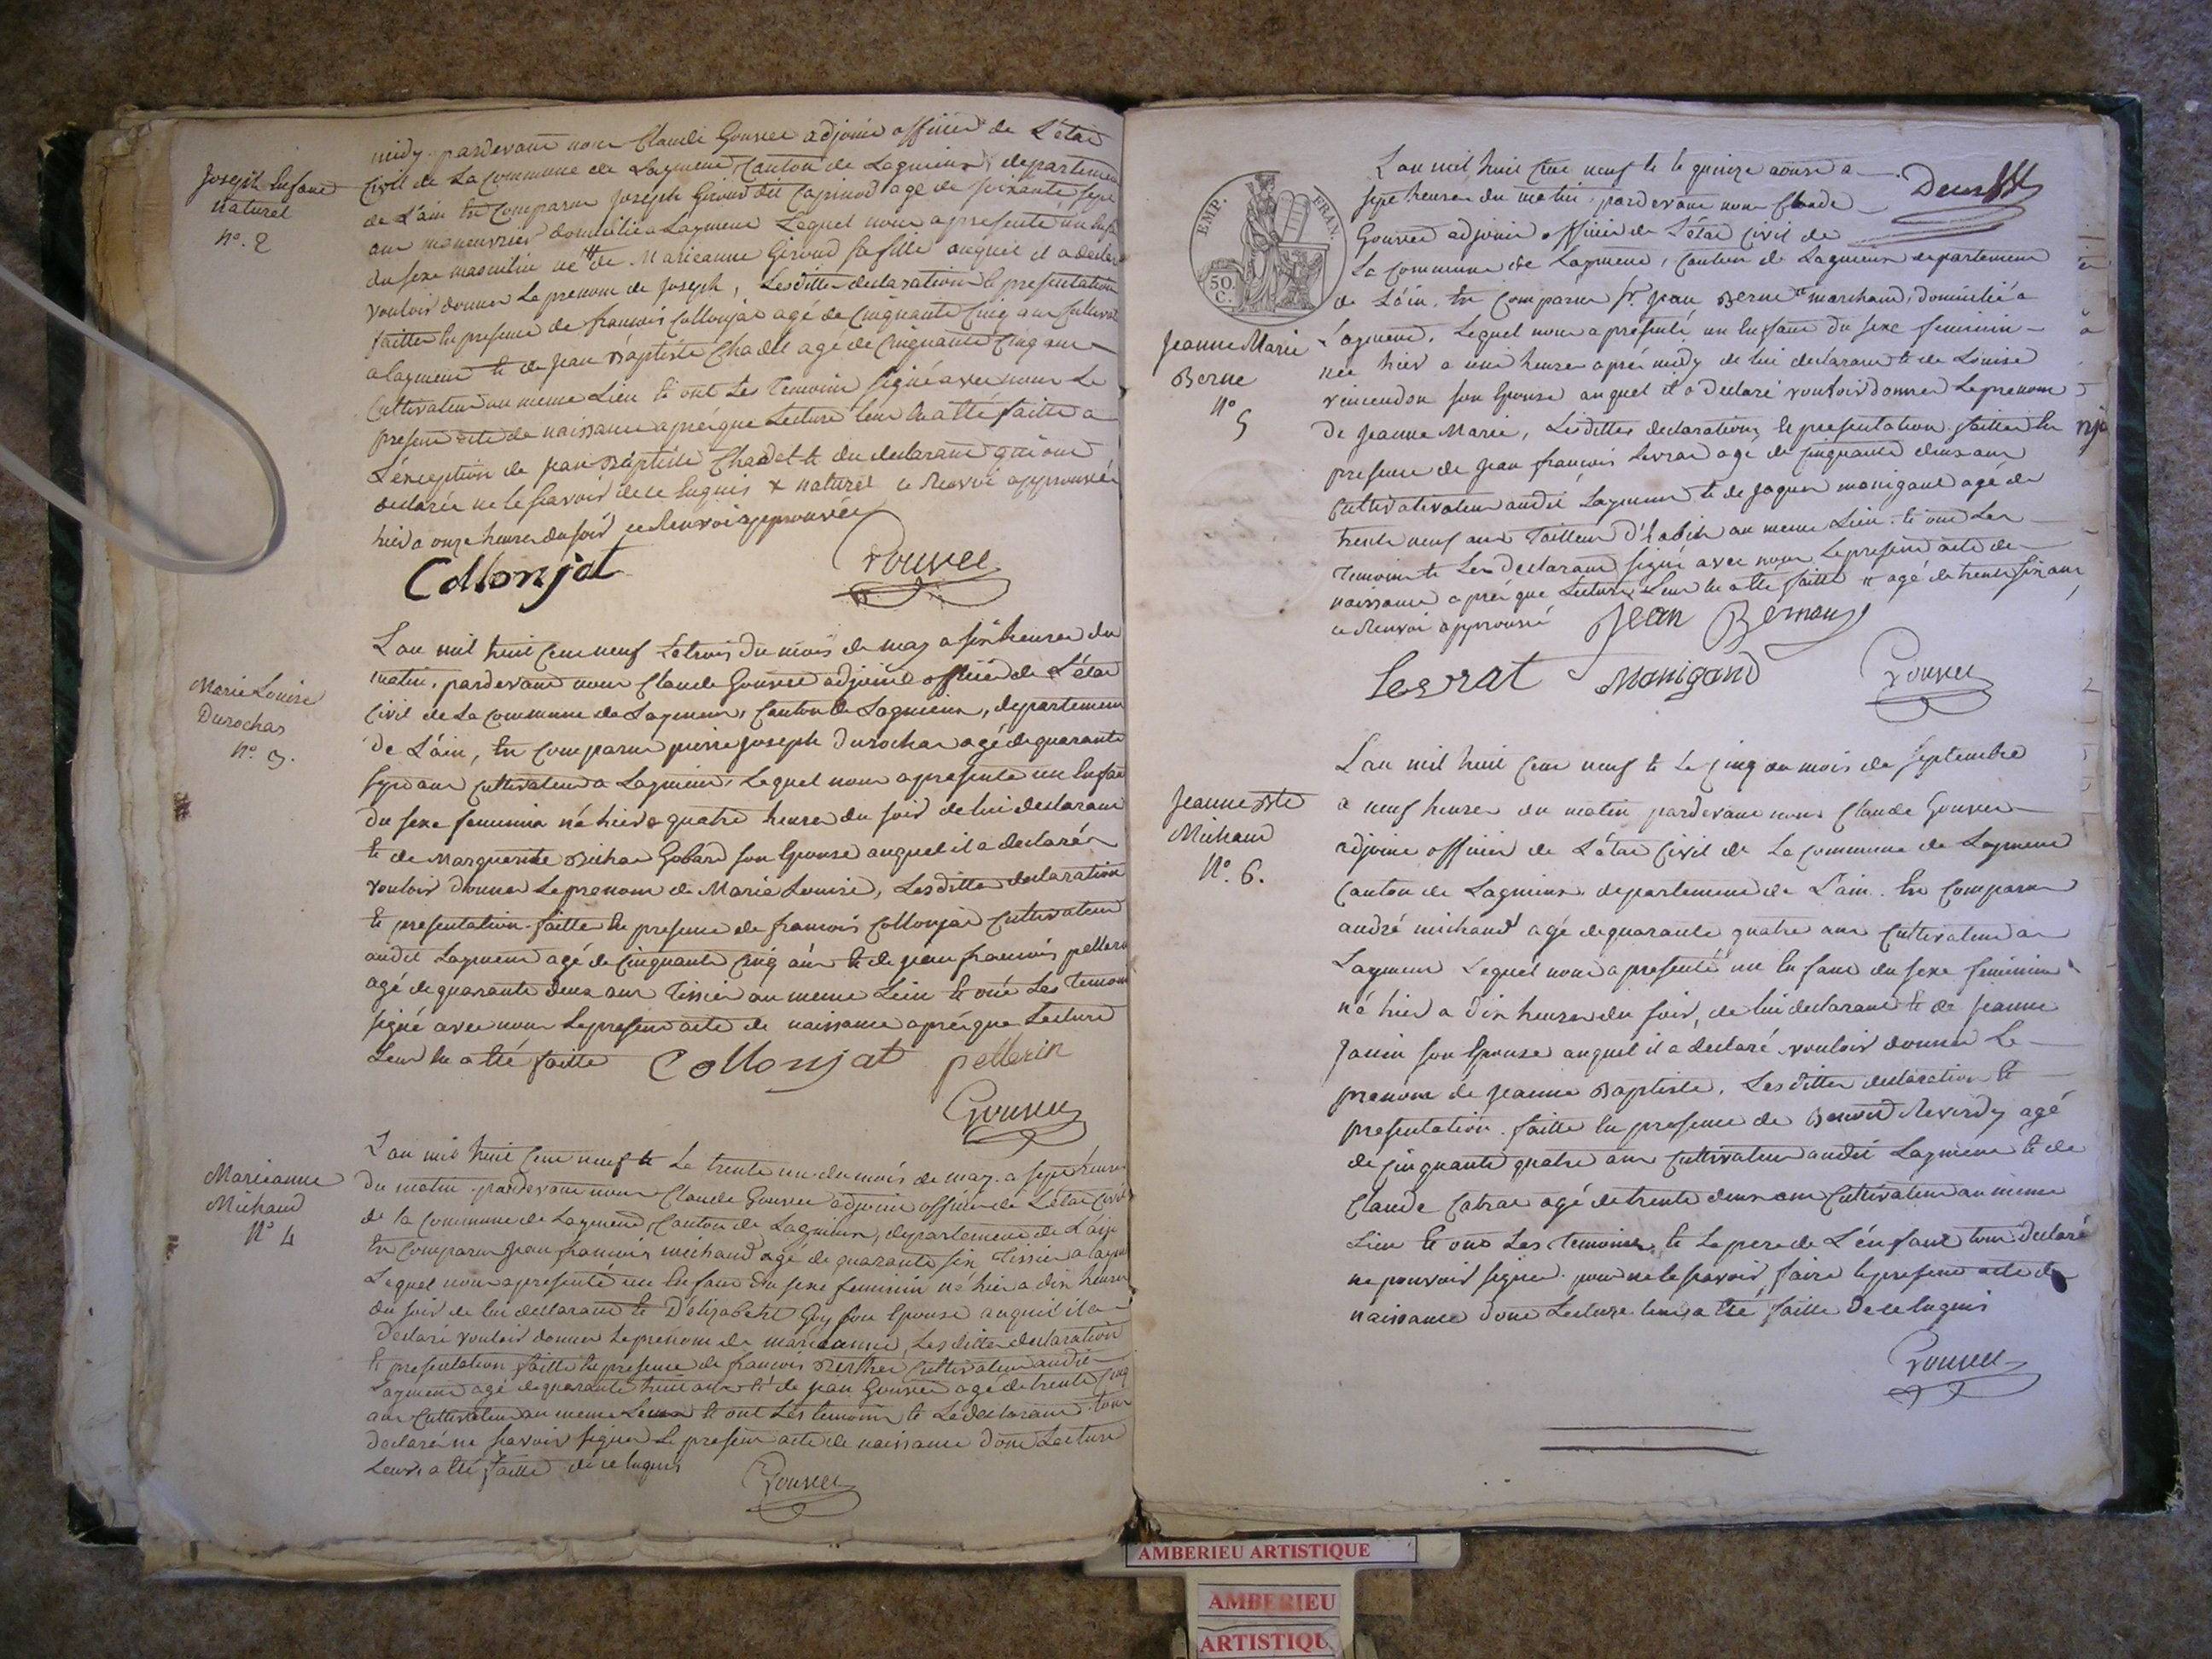 midy pardevant nous Claude Gouvee adjoint officier de L'état
Joseph Enfant
naturel
n°. 2
Civil de La Commune de Laymene, Canton de Lagnieux, departement
de L'ain est Comparu Joseph Giroud dit Capinod agé de soixante sept
ans maneuvrier domicilié a Laymene Lequel nous a presenté un Enfant
du sexe masculin né de Marieanne Giroud sa fille auquel il a declaré
vouloir donner Le prenom de Joseph, Lesdittes declaration et presentation
faittes en presence de francois Collonjat agé de Cinquante Cinq ans Cultivat
a laymene et de Jean Baptiste Chadel agé de Cinquante Cinq ans
Cultivateur au meme Lieu et ont Les Temoins signé avec nous Le
present acte de naissance aprés que Lecture leur en a été faitte a
L'exception de Jean Baptiste Chadel et du declarant qui ont
declarée ne le scavoir de ce Enquis x naturel ce Renvoi approuvée
hier a onze heures du soir ce Renvoi approuvée
Collonjat Gouvee
Marie Louise
Durochat
N°. 3.
L'an mil huit Cent neuf Le trois du mois de may a six heures du
matin, pardevant nous Claude Gouvee adjoint officier de L'état
Civil de La Commune de Laymene, Canton de Lagnieux, departement
de L'ain, est Comparu pierre Joseph Durochat agé de quarante
sept ans Cultivateur a Laymene, Lequel nous a presenté un Enfant
du sexe feminin né hier a quatre heures du soir de lui declarant
et de Marguerite Gobard son Epouse auquel il a declarée
vouloir donner Le prenom de Marie Louise, Lesdittes declaration
et presentation faitte en presence de francois Collonjat Cultivateur
audit Laymene agé de Cinquante Cinq ans et de Jean francois pellerin
agé de quarante deux ans Tissier au meme Lieu et ont Les Temoins
signé avec nous Le present acte de naissance aprés que Lecture
Leur en a été faitte Collonjat pellerin
Gouvee
Marieanne
Michaud
N° 4
L'an mil huit Cent neuf et Le trente un du mois de may a sept heures
du matin pardevant nous Claude Gouvee adjoint officier de L'état Civil
de la Commune de Laymene, Canton de Lagnieux, departement de L'ain
est Comparu Jean francois michaud agé de quarante six Tissier a laymene
Lequel nous a presenté un Enfant du sexe feminin né hier a dix heures
du soir de lui declarant et D'elizabeth Guy son Epouse auquel il a
declaré vouloir donner Le prenom de marieanne, Lesdittes declaration
et presentation faitte en presence de francois Berthet Cultivateur audit
Laymene agé de quarante huit ans et de Jean Gouvee agé de trente Cinq
ans Cultivateur au meme Lieu et ont Les temoins et Le declarant tous
declaré ne scavoir signer Le present acte de naissance dont Lecture
Leur a été faitte de ce Enquis
Gouvee
EMP. FRAN.
50.
C.
L'an mil huit Cent neuf et le quinze aoust a
sept heures du matin, pardevant nous Claude
Gouvee adjoint officier de L'état Civil de
La Commune de Laymene, Canton de Lagnieux departement
de L'ain, est Comparu Sr. Jean Berne marchand, domicilié a
Jeanne Marie
Berne
N°
5
Laymene, Lequel nous a presenté un Enfant du sexe feminin
née hier a une heure aprés midy de lui declarant et de Louise
vincendon son Epouse auquel il a declaré vouloir donner Le prenom
de Jeanne Marie, Lesdittes declarations et presentation faittes en
presence de Jean francois Levrat agé de Cinquante deux ans
Cultivateur audit Laymene et de Jaques monigand agé de
trente neuf ans Tailleur D'habit au meme Lieu et ont Les
Temoins et Les declarant signé avec nous Le present acte de
naissance aprés que Lecture Leur en a été faitte # agé de trente six ans
ce Renvoi approuvé Jean Berne
Levrat Monigand Gouvee
Jeanne Bte
Michaud
N°. 6.
L'an mil huit Cent neuf et Le Cinq du mois de Septembre
a neuf heures du matin pardevant nous Claude Gouvee
adjoint officier de L'état Civil de La Commune de Laymene
Canton de Lagnieux departement de L'ain. est Comparu
andré michaud agé de quarante quatre ans Cultivateur a
Laymene Lequel nous a presenté un Enfant du sexe feminin
né hier a dix heures du soir, de lui declarant et de Jeanne
Janin son Epouse auquel il a declaré vouloir donner Le
prenom de Jeanne Baptiste. Lesdittes declaration et
presentation faitte en presence de Benoit Reverdy agé
de Cinquante quatre ans Cultivateur audit Laymene et de
Claude Cabrat agé de trente deux ans Cultivateur au meme
Lieu et ont Les temoins et Le pere de L'enfant tous declaré
ne pouvoir signer pour ne le scavoir faire le present acte de
naissance dont Lecture leur a été faitte de ce Enquis
Gouvee
AMBERIEU ARTISTIQUE
AMBERIEU
ARTISTIQU